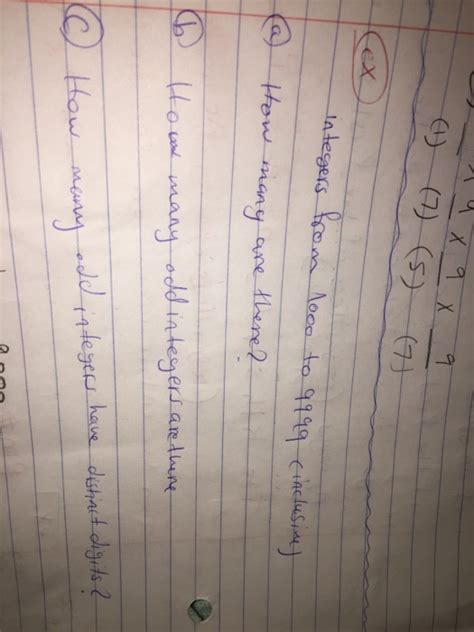 x 9 x 9 x 9
(1) (7) (5) (7)
ex
integers from 1000 to 9999 (inclusive)
(a) How many are there?
(b) How many odd integers are there
(c) How many odd integers have distinct digits?